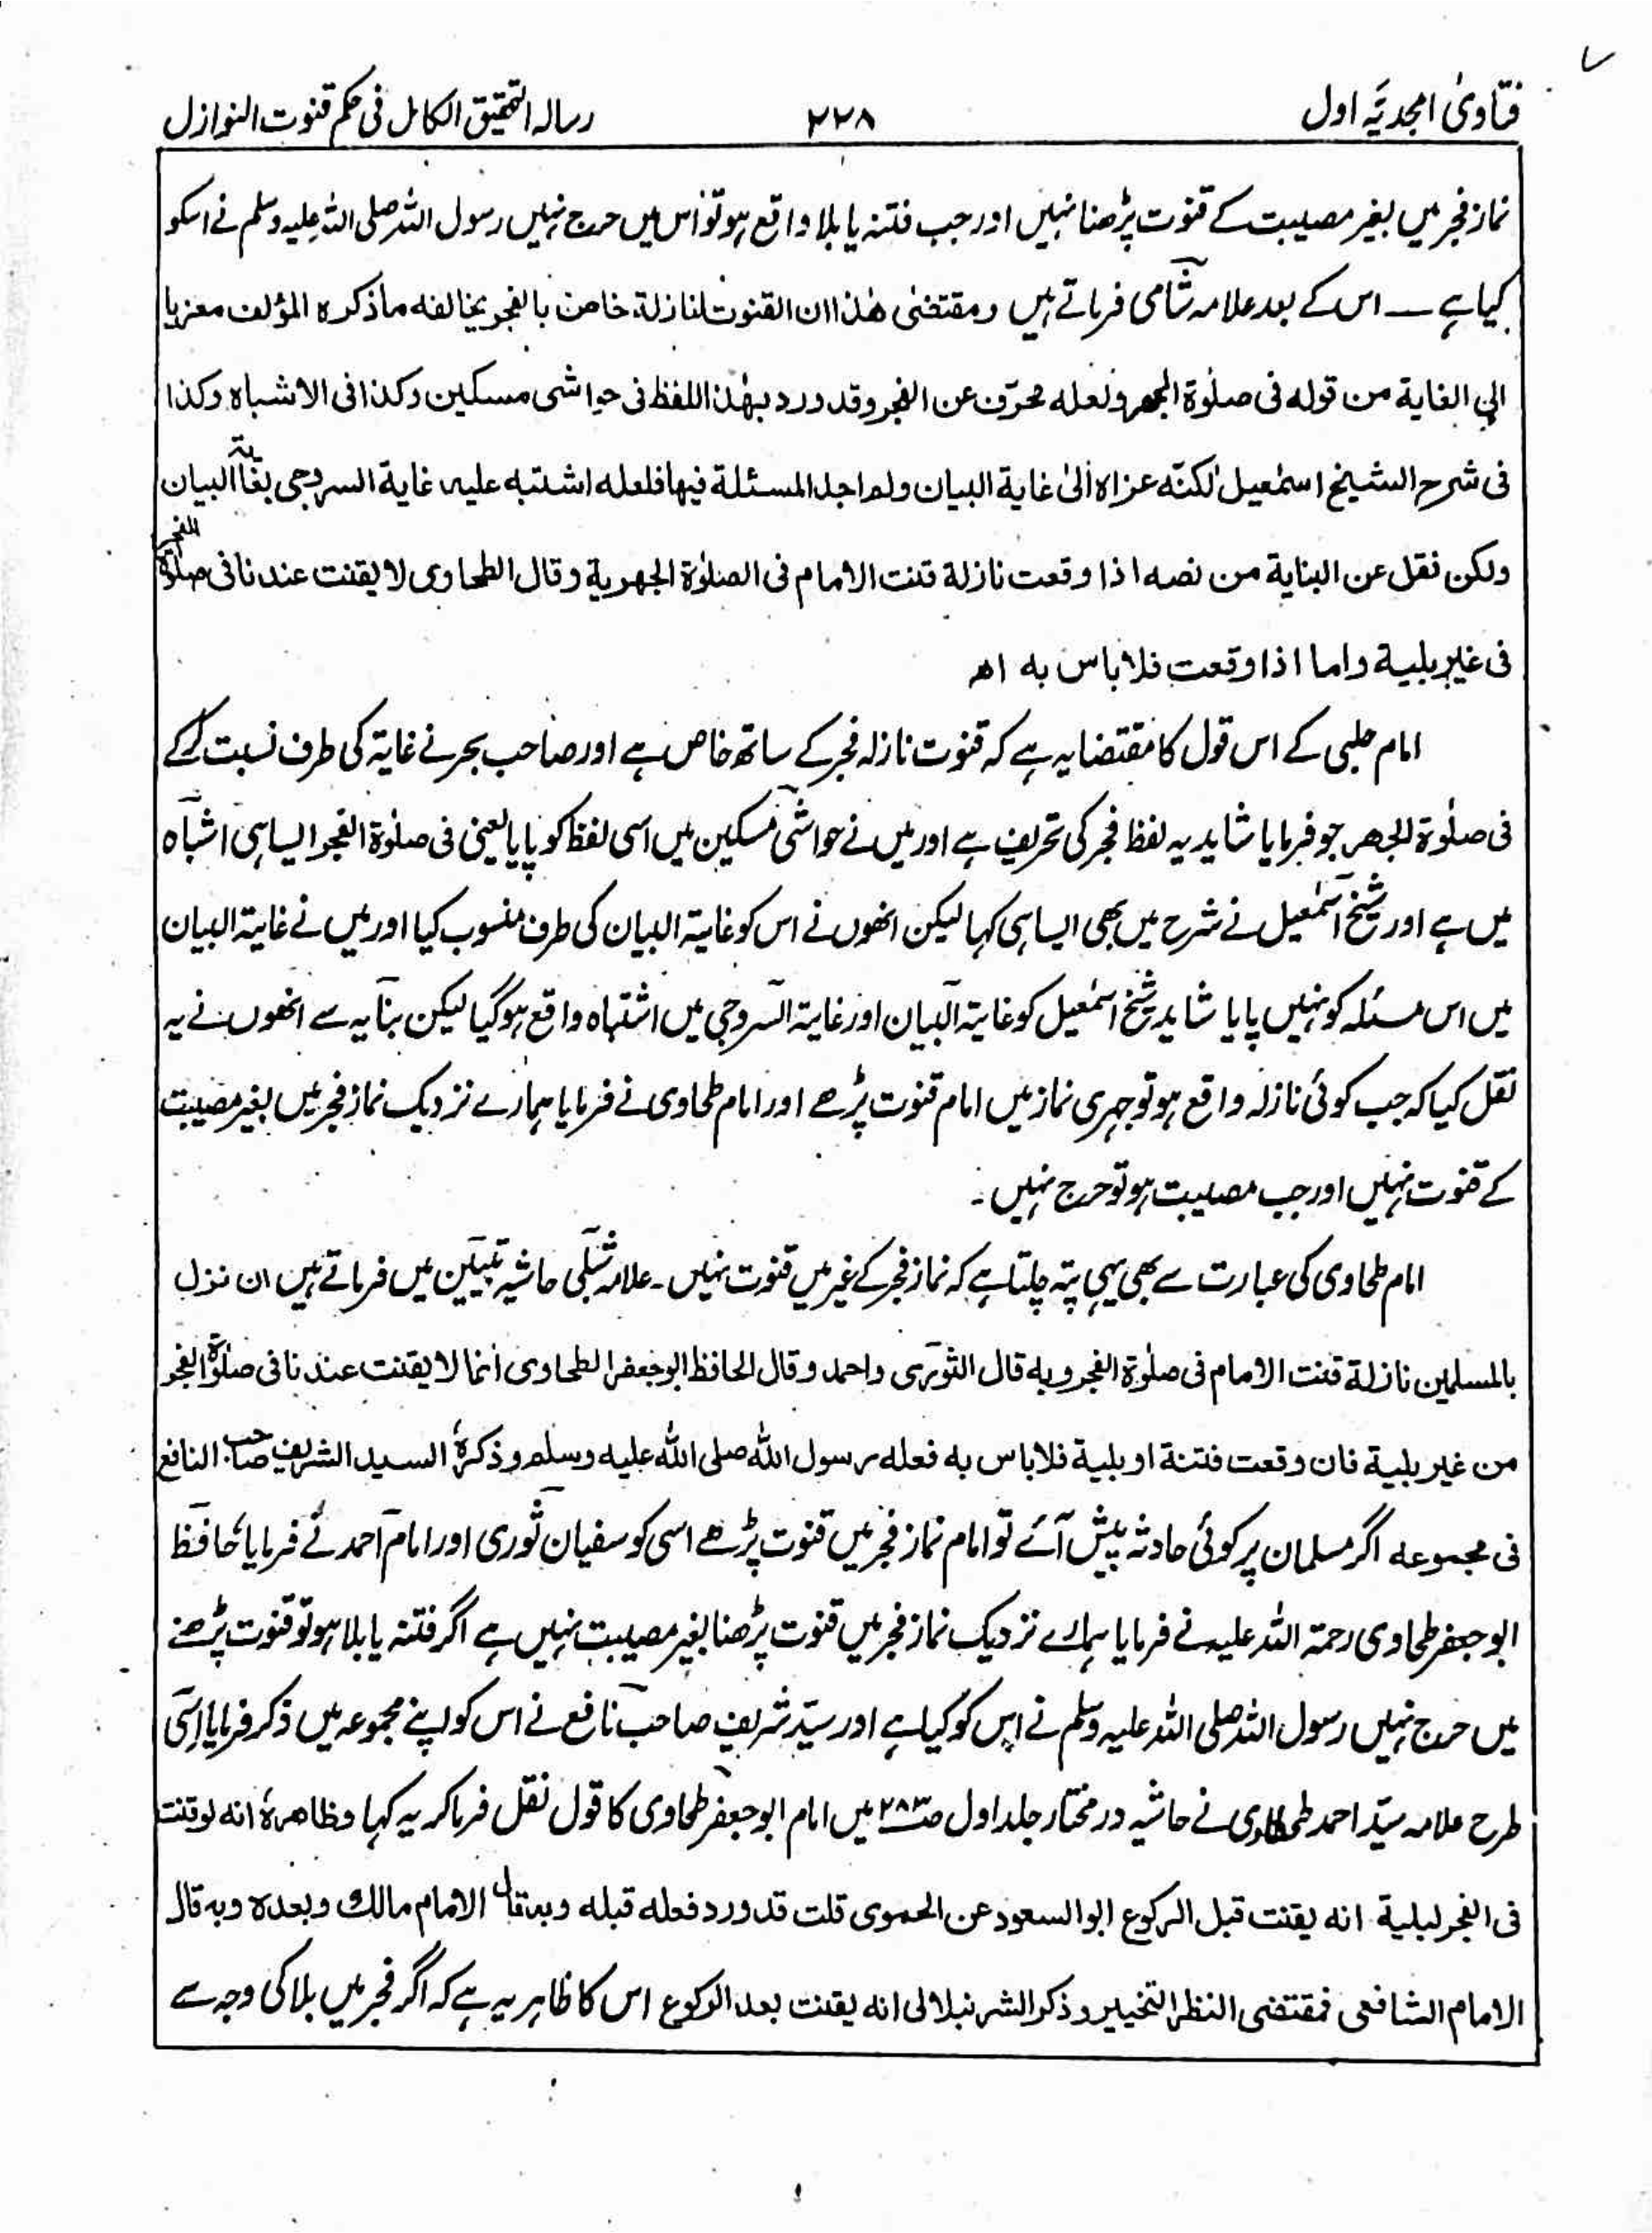 فتاویٰ امجدیہ اول ۲۲۸ رسالہ التحقیق الکامل فی حکم قنوت النوازل
نماز فجر میں بغیر مصیبت کے قنوت پڑھنا نہیں اور جب فتنہ یا بلا واقع ہو تو اس میں حرج نہیں رسول اللہ صلی اللہ علیہ وسلم نے اسکو
کیا ہے ـــ اس کے بعد علامہ شامی فرماتے ہیں ومقتضیٰ ھٰذا ان القنوت لنازلۃ خاص بالفجر یخالفہ ماذکرہ المؤلف معزیا
الی الغایۃ من قولہ فی صلوٰۃ الجھر ولعلہ محرّف عن الفجر وقد ورد بھٰذا اللفظ فی حواشی مسکین وکذا فی الاشباہ وکذا
فی شرح الشیخ اسمٰعیل لٰکنّہ عزاہ الیٰ غایۃ البیان ولم اجد المسئلۃ فیھا فلعلہ اشتبہ علیہ غایۃ السروجی بغایۃ البیان
ولکن نقل عن البنایۃ من نصہ اذا وقعت نازلۃ قنت الامام فی الصلوٰۃ الجھریۃ وقال الطحاوی لا یقنت عندنا فی صلوٰۃ الفجر
فی غیر بلیۃ واما اذا وقعت فلا باس بہ اھ
امام حلبی کے اس قول کا مقتضا یہ ہے کہ قنوت نازلہ فجر کے ساتھ خاص ہے اور صاحب بحر نے غایۃ کی طرف نسبت کرکے
فی صلوٰۃ الجھر جو فرمایا شاید یہ لفظ فجر کی تحریف ہے اور میں نے حواشی مسکین میں اسی لفظ کو پایا یعنی فی صلوٰۃ الفجر ایسا ہی اشباہ
میں ہے اور شیخ اسمٰعیل نے شرح میں بھی ایسا ہی کہا لیکن انھوں نے اس کو غایۃ البیان کی طرف منسوب کیا اور میں نے غایۃ البیان
میں اس مسئلہ کو نہیں پایا شاید شیخ اسمٰعیل کو غایۃ البیان اور غایۃ السروجی میں اشتباہ واقع ہوگیا لیکن بنایہ سے انھوں نے یہ
نقل کیا کہ جب کوئی نازلہ واقع ہو تو جہری نماز میں امام قنوت پڑھے اور امام طحاوی نے فرمایا ہمارے نزدیک نماز فجر میں بغیر مصیبت
کے قنوت نہیں اور جب مصیبت ہو تو حرج نہیں ۔
امام طحاوی کی عبارت سے بھی یہی پتہ چلتا ہے کہ نماز فجر کے غیر میں قنوت نہیں ۔ علامہ شلبی حاشیہ تبیین میں فرماتے ہیں ان نزل
بالمسلمین نازلۃ قنت الامام فی صلوٰۃ الفجر وبہ قال الثوری واحمد وقال الحافظ ابو جعفر الطحاوی انما لا یقنت عندنا فی صلوٰۃ الفجر
من غیر بلیۃ فان وقعت فتنۃ او بلیۃ فلا باس بہ فعلہ رسول اللہ صلی اللہ علیہ وسلم وذکرہ السید الشریف صاحب النافع
فی مجموعہ اگر مسلمان پر کوئی حادثہ پیش آئے تو امام نماز فجر میں قنوت پڑھے اسی کو سفیان ثوری اور امام احمد نے فرمایا حافظ
ابو جعفر طحاوی رحمۃ اللہ علیہ نے فرمایا ہمارے نزدیک نماز فجر میں قنوت پڑھنا بغیر مصیبت نہیں ہے اگر فتنہ یا بلا ہو تو قنوت پڑھنے
میں حرج نہیں رسول اللہ صلی اللہ علیہ وسلم نے اس کو کیا ہے اور سیّد شریف صاحب نافع نے اس کو اپنے مجموعہ میں ذکر فرمایا اسی
طرح علامہ سیّد احمد طحطاوی نے حاشیہ درمختار جلد اول ص۲۸۳ میں امام ابو جعفر طحاوی کا قول نقل فرماکر یہ کہا وظاھرہ انہ لو قنت
فی الفجر لبلیۃ انہ یقنت قبل الرکوع ابو السعود عن الحموی قلت قد ورد فعلہ قبلہ وبہ قال الامام مالک وبعدہ وبہ قال
الامام الشافعی فمقتضی النظر التخییر وذکر الشرنبلالی انہ یقنت بعد الرکوع اس کا ظاہر یہ ہے کہ اگر فجر میں بلا کی وجہ سے